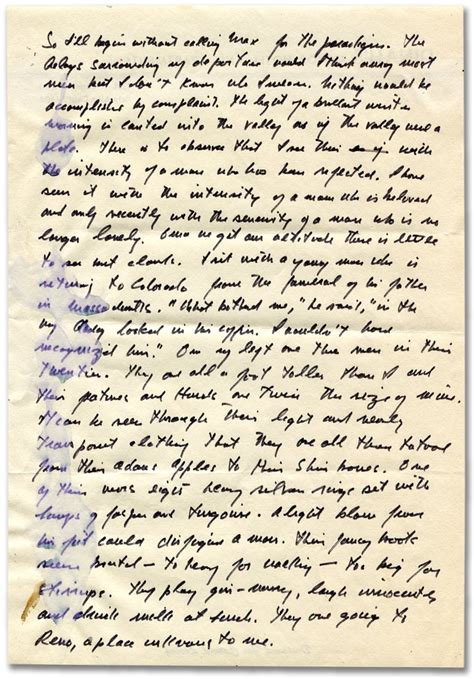 So I'll begin without calling Max for the paradigm. The
delays surrounding my departure would I think annoy most
men but I don't know who I mean. Nothing would be
accomplished by complaint. The light of a brilliant winter
morning is canted into the valley as if the valley were a
plate. There is to observe that I see this with
the intensity of a man who has been rejected. I have
seen it with the intensity of a man who is beloved
and only recently with the serenity of a man who is no
longer lonely. Once we get our altitude there is little
to see but clouds. I sit with a young man who is
returning to Colorado from the funeral of his father
in Massachusetts. "What bothered me," he said, "is the
way daddy looked in his coffin. I wouldn't have
recognized him." On my left are three men in their
twenties. They are all a foot taller than I and
their and hands are twice the size of mine.
It can be seen through their light and nearly
transparent clothing that they are all three tatooed
from their adams apples to their shin bones. One
of them wears eight heavy silver rings set with
lumps of jasper and turquoise. A light blow from
his fist could disfigure a man. Their fancy boots
seem brutal - to heavy for walking - too big for
stirrups. They play gin-rummy, laugh innocently
and drink milk at lunch. They are going to
Reno, a place unknown to me.